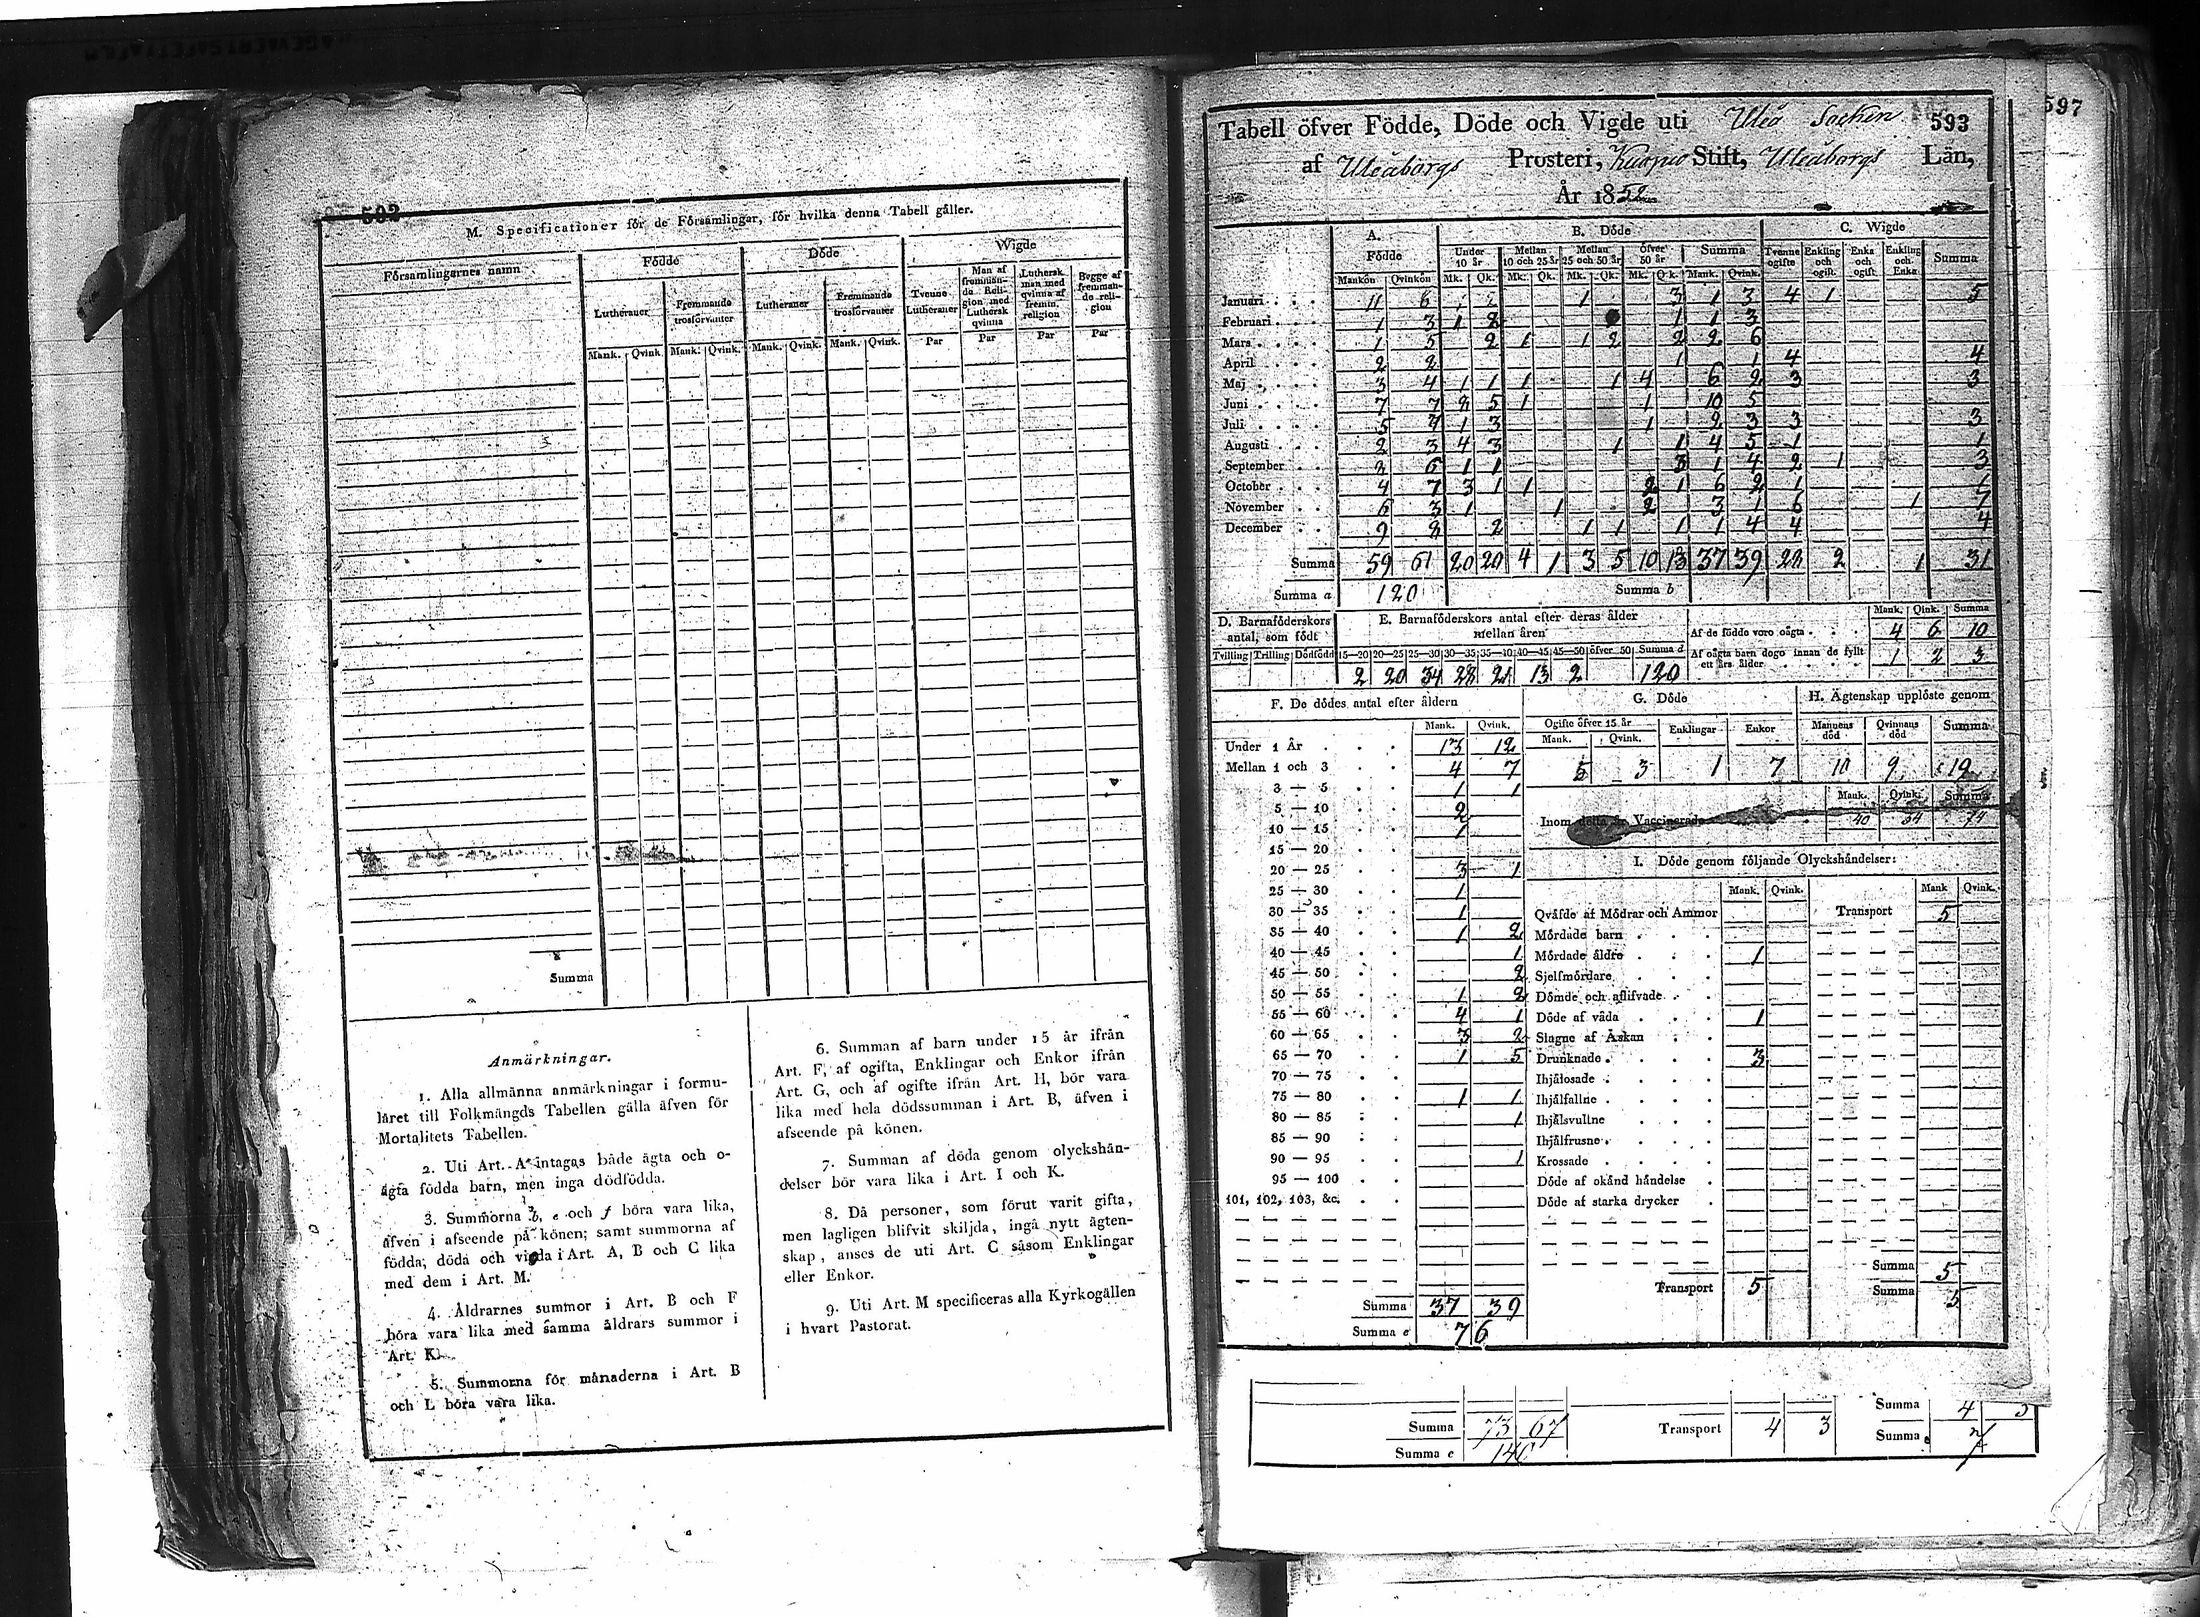 592
M. Specificationer för de Församlingar, för hvilka denna Tabell gäller.
Församlingarnes namn
Födde
Döde
Wigde
Lutheraner
Fremmande trosförvanter
Lutheraner
Fremmande trosförvanter
Tvenne Lutheraner
Man af fremmande Religion med Luthersk qvinna
Luthersk man med qvinna af fremm. religion
Begge af fremmande religion
Mank. Qvink. Mank. Qvink. Mank. Qvink. Mank. Qvink. Par Par Par Par
Summa
Anmärkningar.
1. Alla allmänna anmärkningar i formu-
läret till Folkmängds Tabellen gälla äfven för
Mortalitets Tabellen.
2. Uti Art. A intagas både ägta och o-
ägta födda barn, men inga dödfödda.
3. Summorna b, e och f böra vara lika,
äfven i afseende på könen; samt summorna af
födda, döda och vigda i Art. A, B och C lika
med dem i Art. M.
4. Åldrarnes summor i Art. B och F
böra vara lika med samma åldrars summor i
Art. K.
5. Summorna för månaderna i Art. B
och L böra vara lika.
6. Summan af barn under 15 år ifrån
Art. F, af ogifta, Enklingar och Enkor ifrån
Art. G, och af ogifte ifrån Art. H, bör vara
lika med hela dödssumman i Art. B, äfven i
afseende på könen.
7. Summan af döda genom olyckshän-
delser bör vara lika i Art. I och K.
8. Då personer, som förut varit gifta,
men lagligen blifvit skiljda, ingå nytt ägten-
skap, anses de uti Art. C såsom Enklingar
eller Enkor.
9. Uti Art. M specificeras alla Kyrkogällen
i hvart Pastorat.
597
Tabell öfver Födde, Döde och Vigde uti Uleå Socken 593
af Uleåborgs Prosteri, Kuopio Stift, Uleåborgs Län,
År 1852
A. Födde
B. Döde
C. Wigde
Under 10 år
Mellan 10 och 25 år
Mellan 25 och 50 år
Öfver 50 år
Summa
Tvenne ogifte
Enkling och ogift.
Enka och ogift
Enkling och Enka
Summa
Mankön Qvinkön Mk. Qk. Mk. Qk. Mk. Qk. Mk. Qk. Mank. Qvink.
Januari 11 6 1 3 1 3 4 1 5
Februari 1 3 1 2 1 1 3
Mars 1 5 2 1 1 2 2 2 6
April 2 2 1 1 4 4
Maj 3 4 1 1 1 1 4 6 2 3 3
Juni 7 7 8 5 1 1 10 5
Juli 5 7 1 3 1 2 3 3 3
Augusti 2 3 4 3 1 1 4 5 1 1
September 2 6 1 1 3 1 4 2 1 3
October 4 7 3 1 1 2 1 6 2 1 1
November 6 3 1 1 2 3 1 6 1 7
December 9 8 2 1 1 1 1 4 4 4
Summa 59 61 20 20 4 1 3 5 10 13 37 39 28 2 1 31
Summa a 120 Summa b
D. Barnaföderskors antal, som födt
Tvilling Trilling Dödfödd
E. Barnaföderskors antal efter deras ålder mellan åren
15—20 20—25 25—30 30—35 35—40 40—45 45—50 öfver 50 Summa d
2 20 34 28 21 13 2 120
Mank. Qink. Summa
Af de födde voro oägta 4 6 10
Af oägta barn dogo innan de fyllt ett års ålder 1 2 3
F. De dödes antal efter åldern
Mank. Qvink.
Under 1 År 13 12
Mellan 1 och 3 4 7
3 — 5 1 1
5 — 10 2
10 — 15 1
15 — 20
20 — 25 3 1
25 — 30 1
30 — 35 1
35 — 40 1 2
40 — 45 1
45 — 50 2
50 — 55 1 2
55 — 60 4 1
60 — 65 3 2
65 — 70 1 5
70 — 75
75 — 80 1 1
80 — 85 1
85 — 90
90 — 95 1
95 — 100
101, 102, 103, &c.
Summa 37 39
Summa e 76
G. Döde
Ogifte öfver 15 år
Mank. Qvink. Enklingar Enkor
5 3 1 7
H. Ägtenskap upplöste genom
Mannens död Qvinnans död Summa
10 9 19
Mank. Qvink. Summa
Inom detta år Vaccinerade 40 34 74
I. Döde genom följande Olyckshändelser:
Mank. Qvink. Mank Qvink.
Qväfde af Mödrar och Ammor Transport 5
Mördade barn
Mördade äldre 1
Sjelfmördare
Dömde och aflifvade
Döde af våda 1
Slagne af Åskan
Drunknade 3
Ihjälosade
Ihjälfallne
Ihjälsvultne
Ihjälfrusne
Krossade
Döde af okänd händelse
Döde af starka drycker
Summa 5
Transport 5 Summa 5
Summa 73 67 Transport 4 3 Summa 4 3
Summa e 140 Summa 7